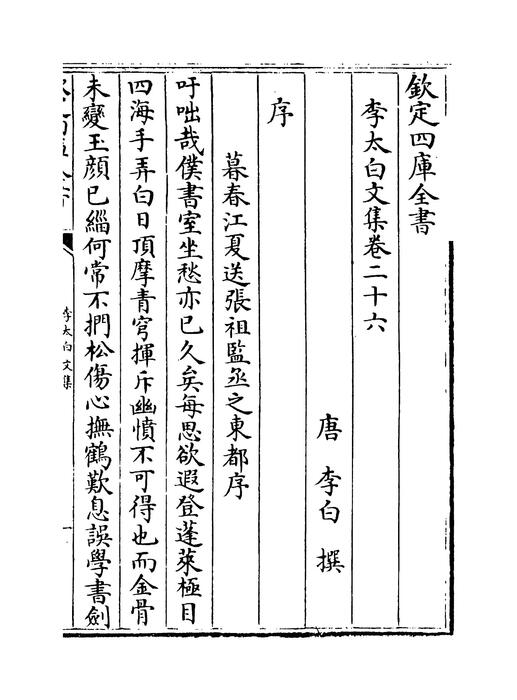 欽定四庫全書
李太白文集卷二十六
唐 李白 撰
序
暮春江夏送張祖監丞之東都序
吁咄哉僕書室坐愁亦已久矣每思欲遐登蓬萊極目
四海手弄白日頂摩青穹揮斥幽憤不可得也而金骨
未變玉顔已緇何常不捫松傷心撫鶴歎息誤學書劍
李太白文集
一